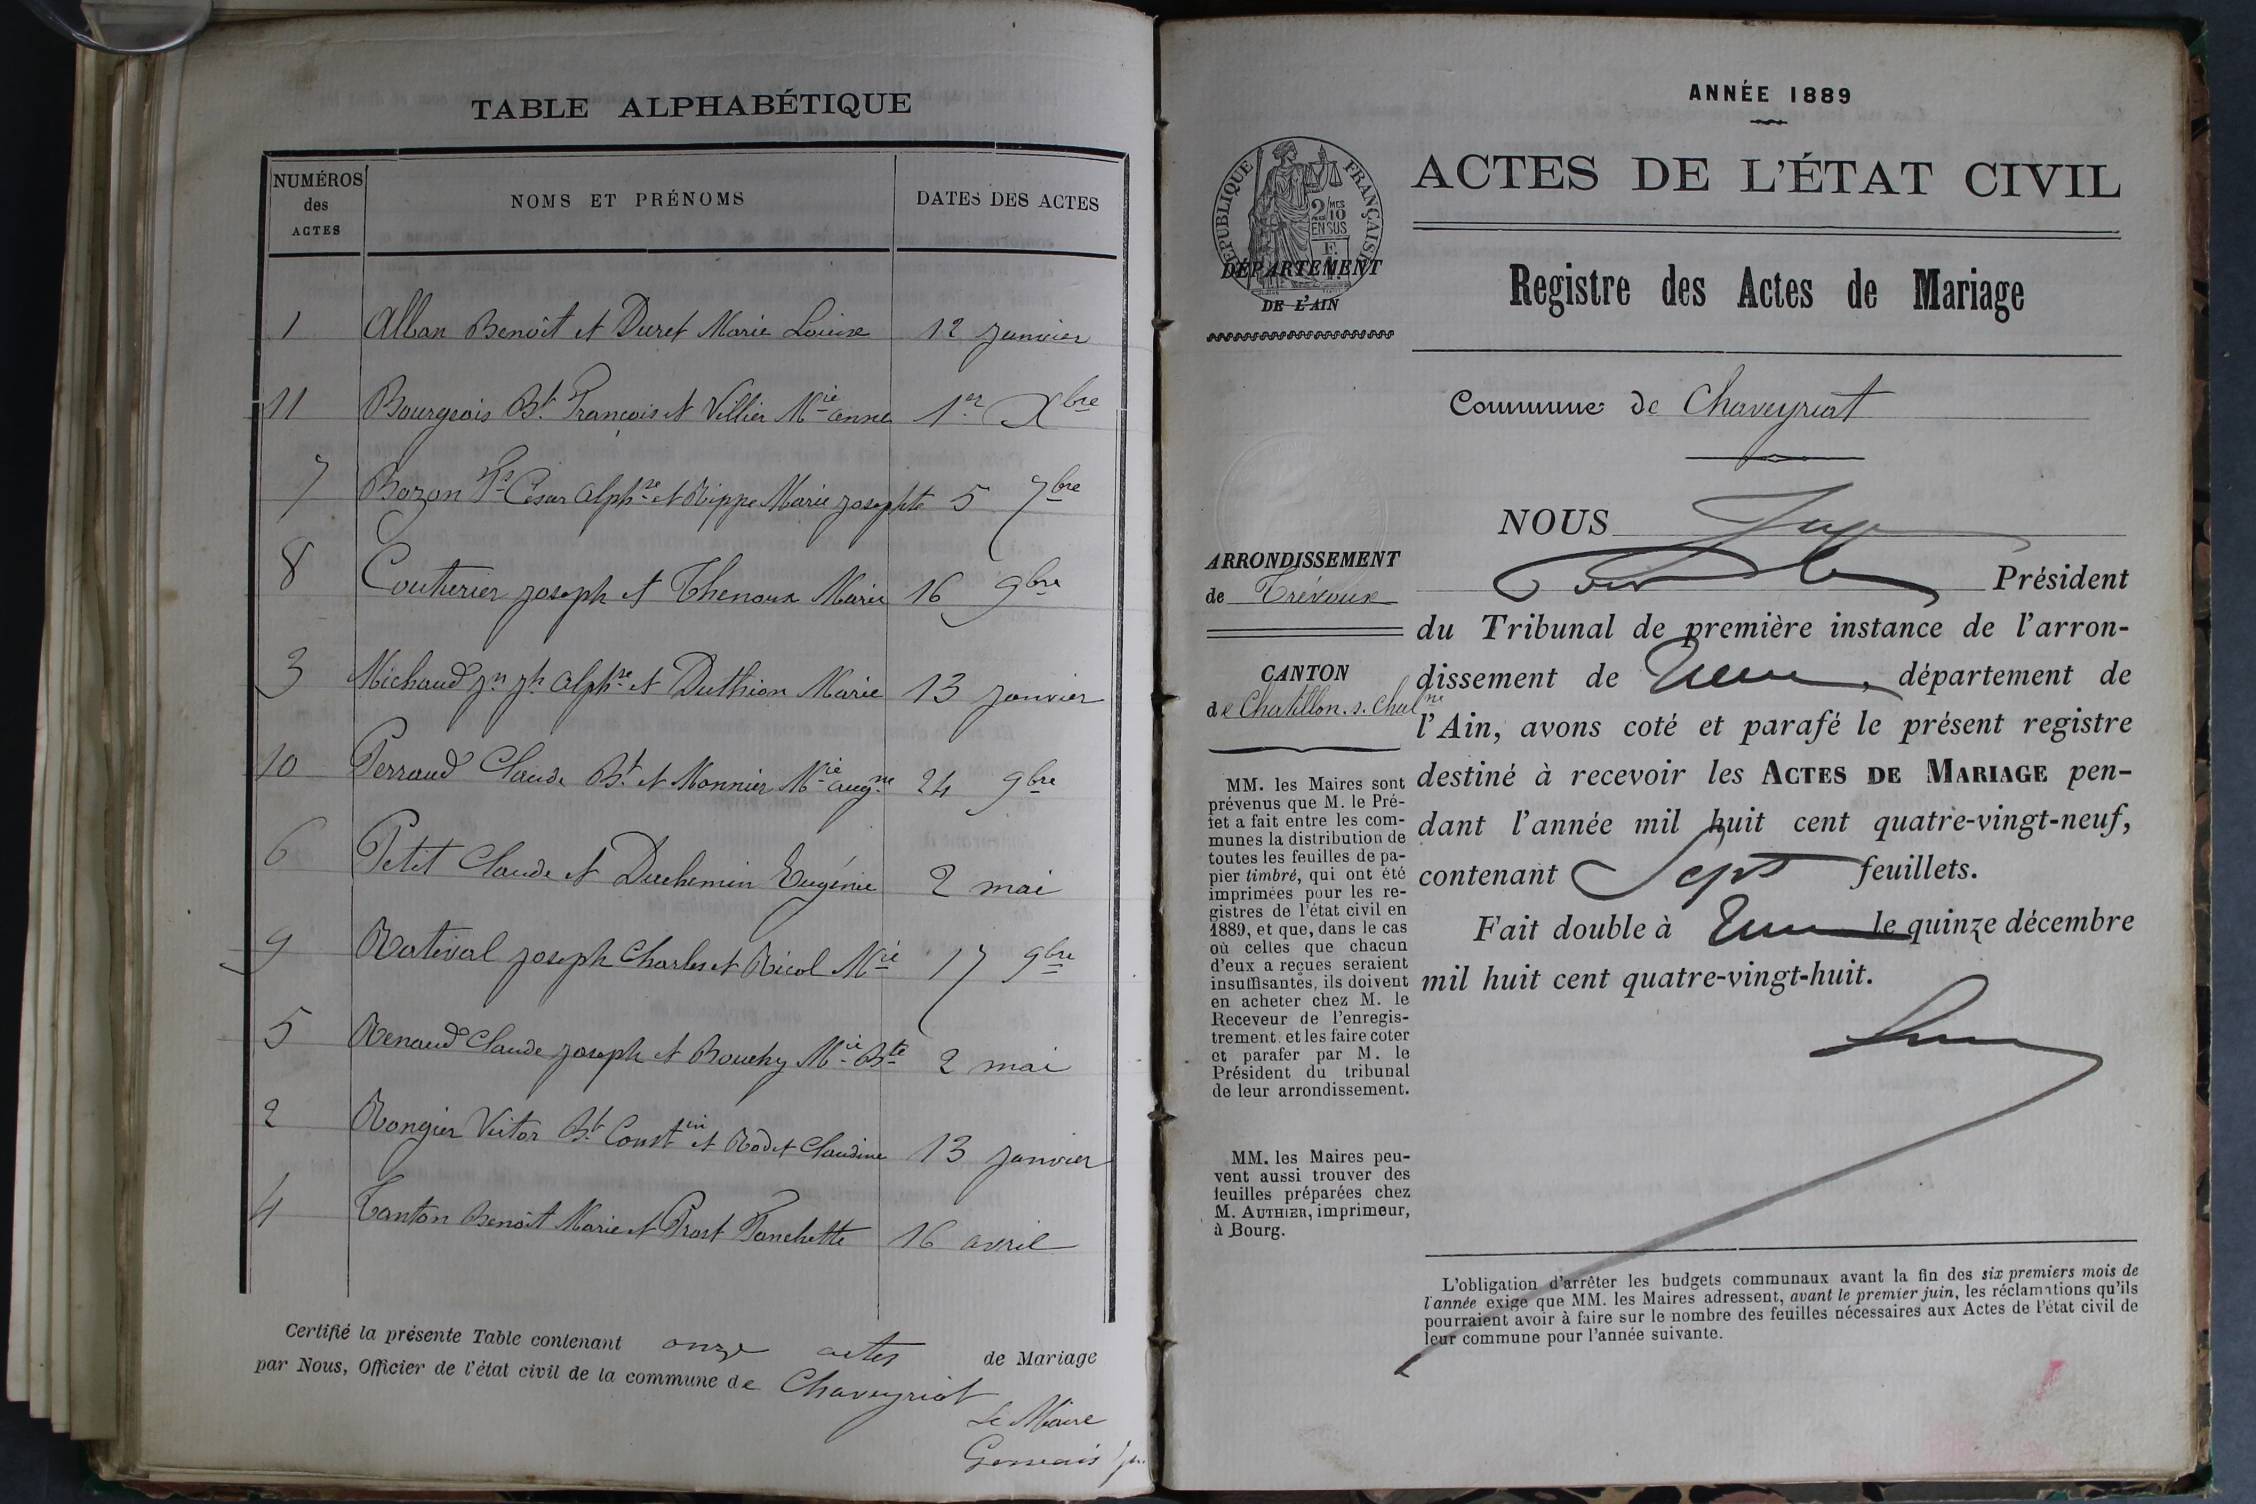 TABLE ALPHABÉTIQUE
NUMÉROS
des
ACTES
NOMS ET PRÉNOMS
DATES DES ACTES
1 Alban Benoît et Duret Marie Louise 12 janvier
11 Bourgeois Bt François et Villier Mie anne 1er Xbre
7 Bozon Fs César Alphse et Rippe Marie Josephte 5 7bre
8 Couturier Joseph et Thenoux Marie 16 9bre
3 Michaud Jn Jh Alphse et Duthion Marie 13 janvier
10 Perraud Claude Bt et Monnier Mie Augne 24 9bre
6 Petit Claude et Duchemin Eugénie 2 mai
9 Rateval Joseph Charles et Nicol Mie 17 9bre
5 Renaud Claude Joseph et Bouchy Mie Bte 2 mai
2 Rongier Victor Bt Constin et Rodet Claudine 13 janvier
4 Tanton Benoît Marie et Prost Fanchette 16 avril
Certifié la présente Table contenant onze actes de Mariage
par Nous, Officier de l'état civil de la commune de Chaveyriat
Le Maire
Gervais
ANNÉE 1889
RÉPUBLIQUE FRANÇAISE
2/10
EN SUS
DÉPARTEMENT
DE L'AIN
ACTES DE L'ÉTAT CIVIL
Registre des Actes de Mariage
Commune de Chaveyriat
ARRONDISSEMENT
de Trévoux
CANTON
de Chatillon s. Chalne
MM. les Maires sont
prévenus que M. le Pré-
fet a fait entre les com-
munes la distribution de
toutes les feuilles de pa-
pier timbré, qui ont été
imprimées pour les re-
gistres de l'état civil en
1889, et que, dans le cas
où celles que chacun
d'eux a reçues seraient
insuffisantes, ils doivent
en acheter chez M. le
Receveur de l'enregis-
trement et les faire coter
et parafer par M. le
Président du tribunal
de leur arrondissement.
MM. les Maires peu-
vent aussi trouver des
feuilles préparées chez
M. AUTHIER, imprimeur,
à Bourg.
NOUS
Président
du Tribunal de première instance de l'arron-
dissement de , département de
l'Ain, avons coté et parafé le présent registre
destiné à recevoir les ACTES DE MARIAGE pen-
dant l'année mil huit cent quatre-vingt-neuf,
contenant Sept feuillets.
Fait double à le quinze décembre
mil huit cent quatre-vingt-huit.
L'obligation d'arrêter les budgets communaux avant la fin des six premiers mois de
l'année exige que MM. les Maires adressent, avant le premier juin, les réclamations qu'ils
pourraient avoir à faire sur le nombre des feuilles nécessaires aux Actes de l'état civil de
leur commune pour l'année suivante.